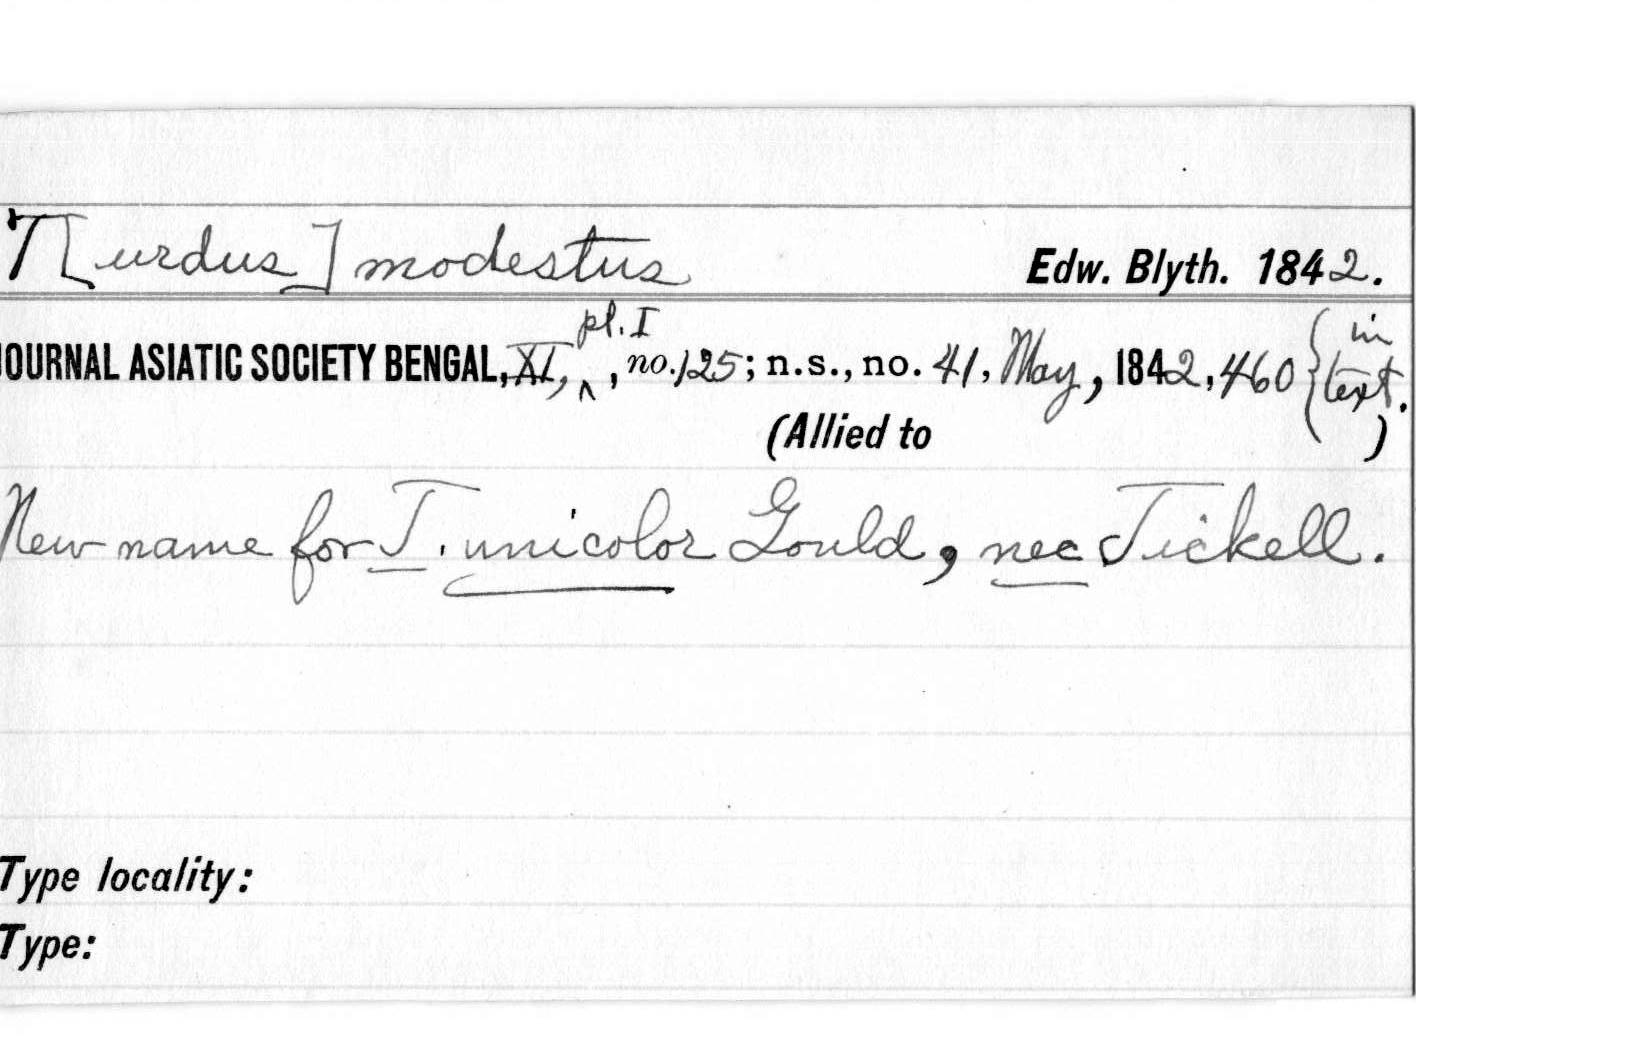 T[urdus] modestus Edw. Blyth. 1842.
pl. I
JOURNAL ASIATIC SOCIETY BENGAL, XI, ^, no. 125; n.s., no. 41, May, 1842, 460 {in text.
(Allied to )
New name for T. unicolor Gould, nec Tickell.
Type locality:
Type: